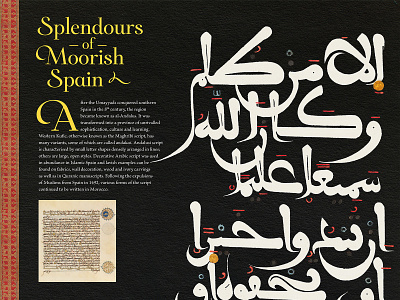 Splendours
of
Moorish
Spain
After the Umayyads conquered southern
Spain in the 8th century, the region
became known as al-Andalus. It was
transformed into a province of unrivalled
sophistication, culture and learning.
Western Kufic, otherwise known as the Maghribi script, has
many variants, some of which are called andalusi. Andalusi script
is characterised by small letter shapes densely arranged in lines,
others are large, open styles. Decorative Arabic script was used
in abundance in Islamic Spain and lavish examples can be
found on fabrics, wall decoration, wood and ivory carvings
as well as in Quranic manuscripts. Following the expulsions
of Muslims from Spain in 1492, various forms of the script
continued to be written in Morocco.
الا من ظلم
وكان الله
سميعا عليما